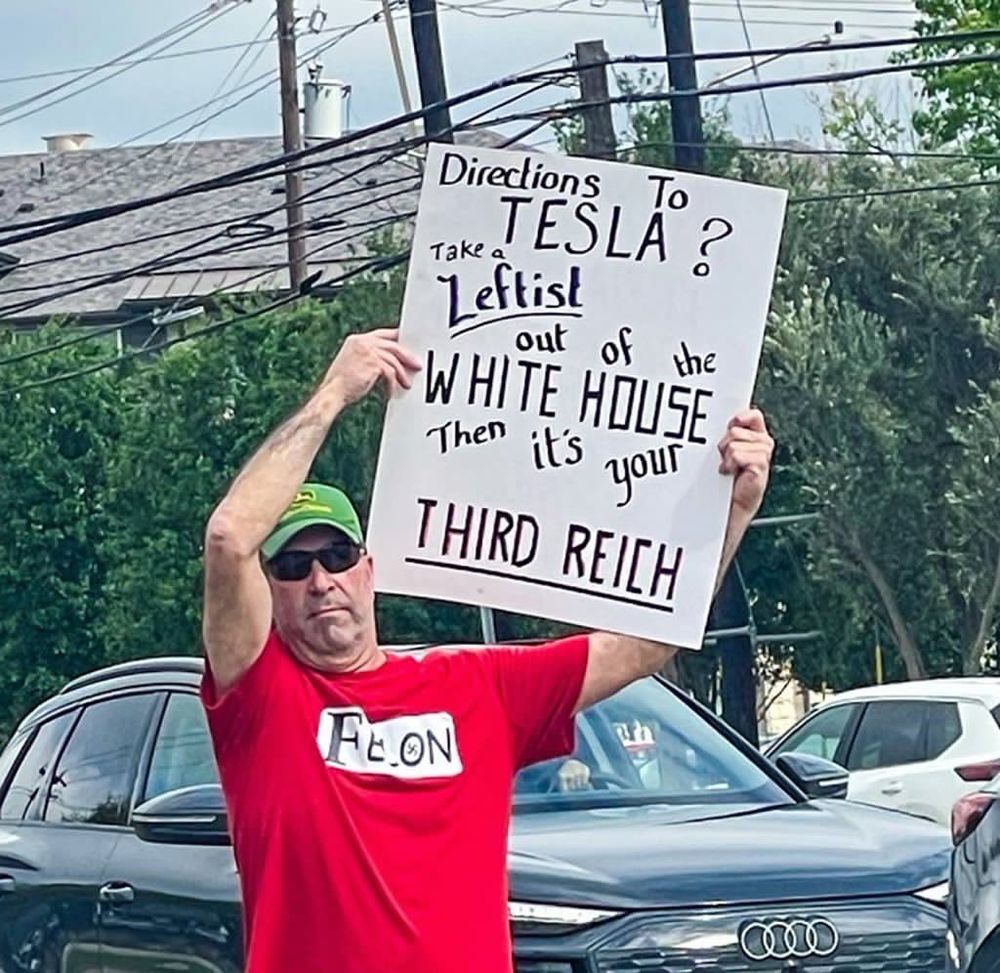 Directions To
TESLA?
Take a
Leftist
out of the
WHITE HOUSE
Then it's your
THIRD REICH
FELON